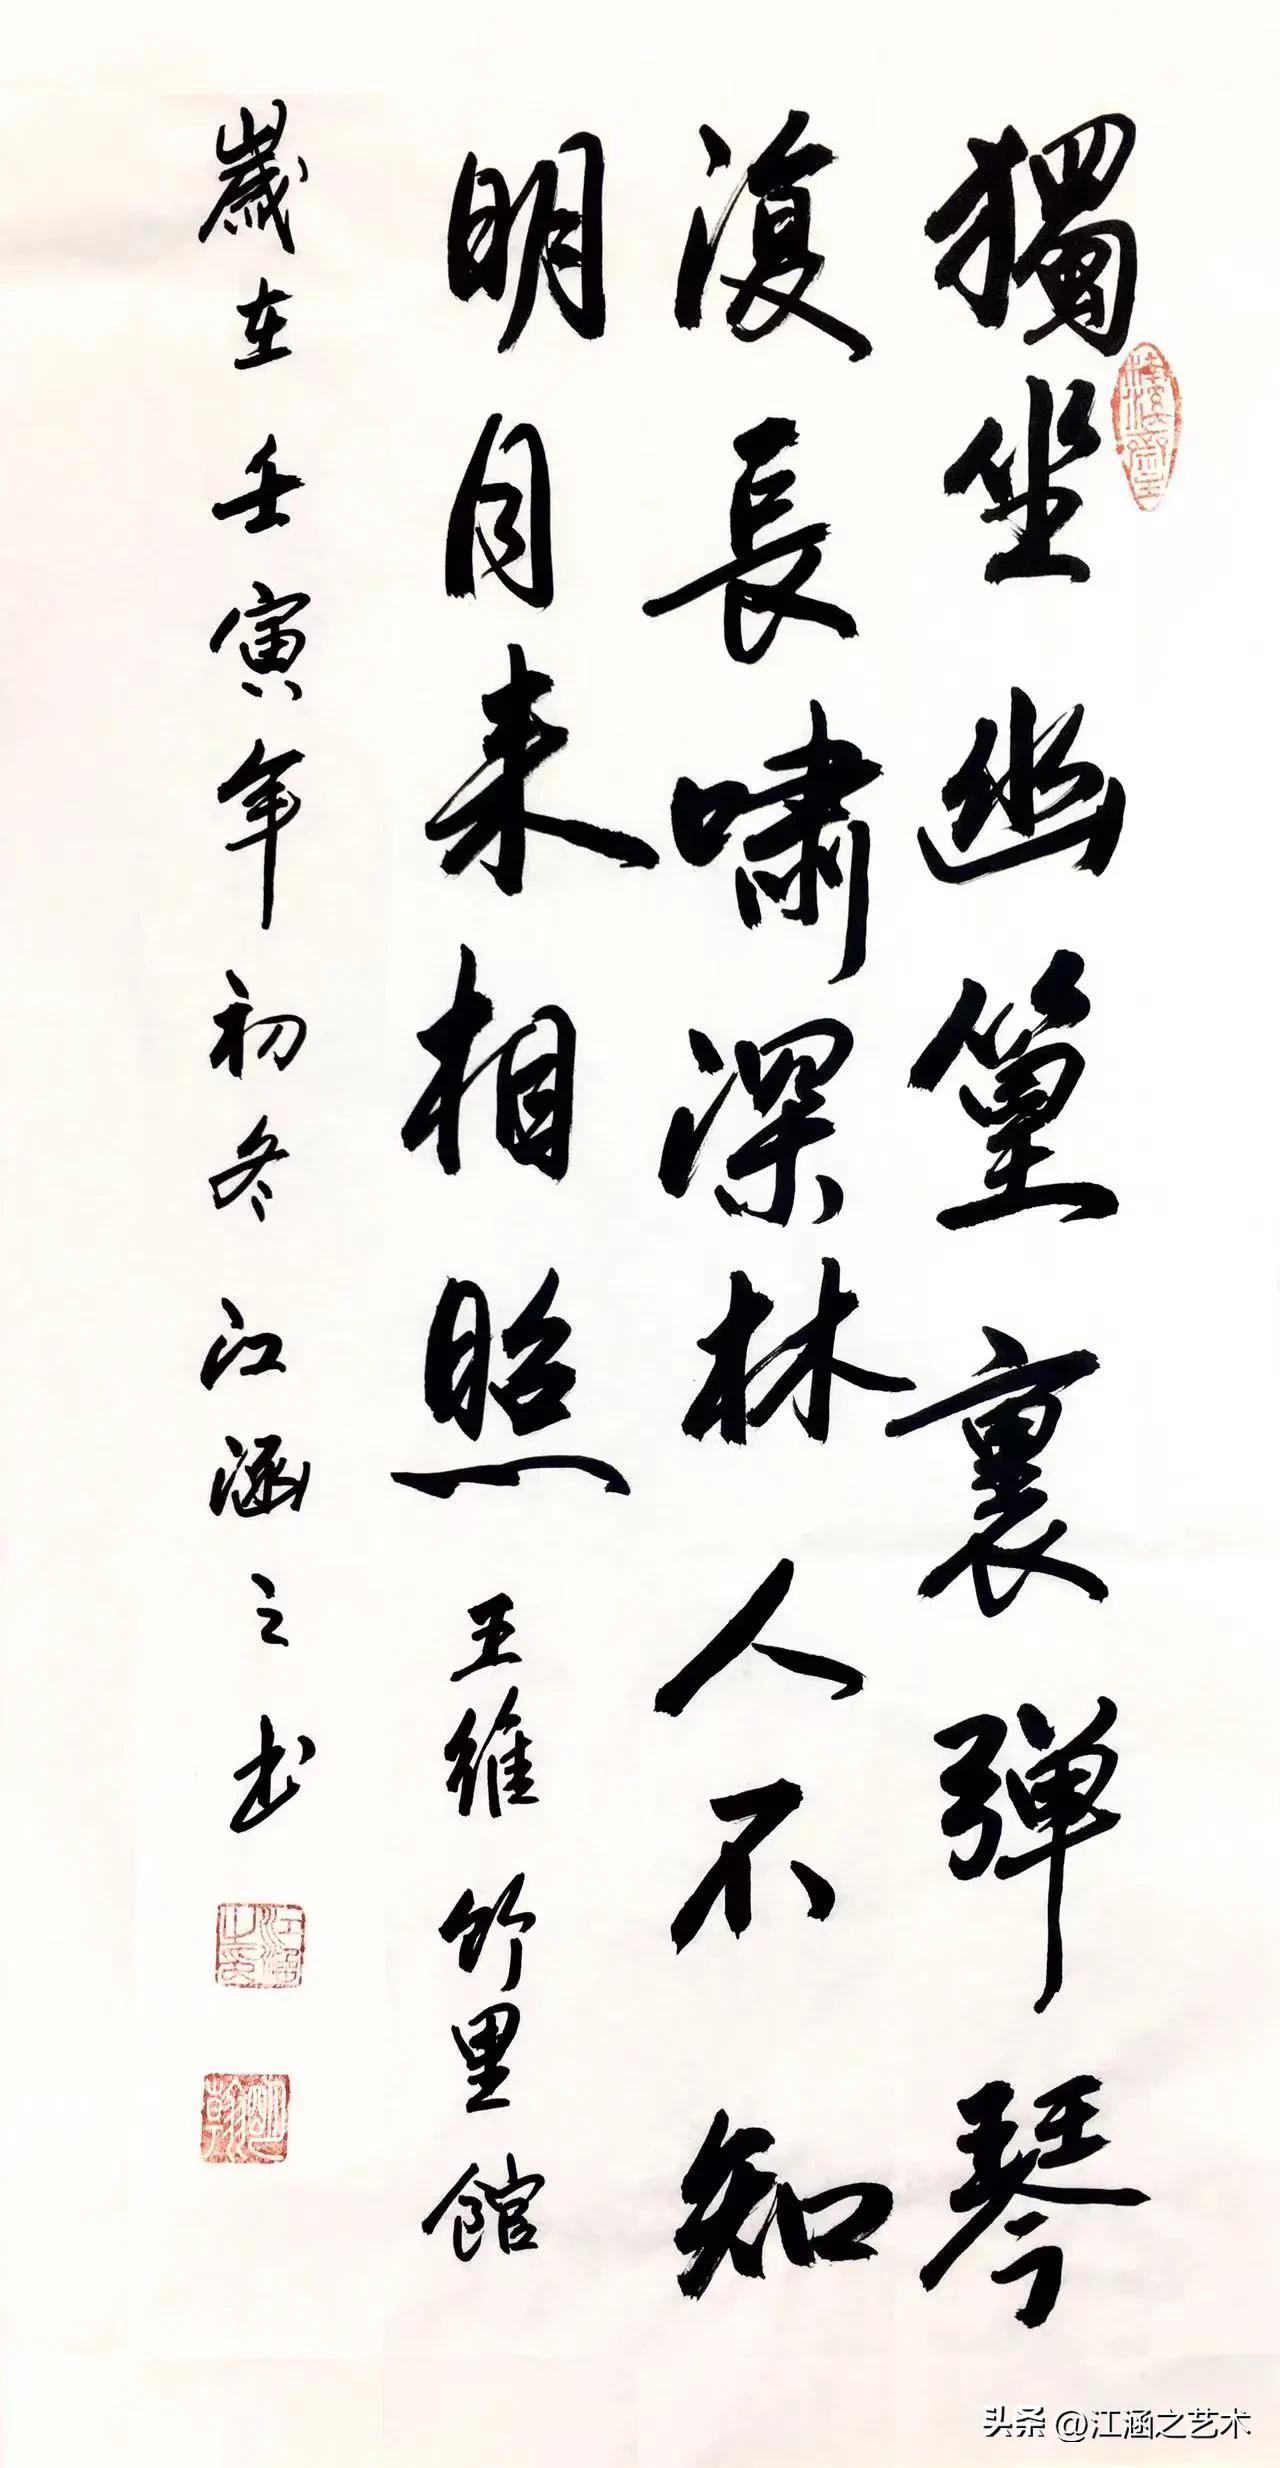 獨坐幽篁裏彈琴
復長嘯深林人不知
明月来相照
王維竹里館
歲在壬寅年初冬江涵之书
江涵之印
头条 @江涵之艺术